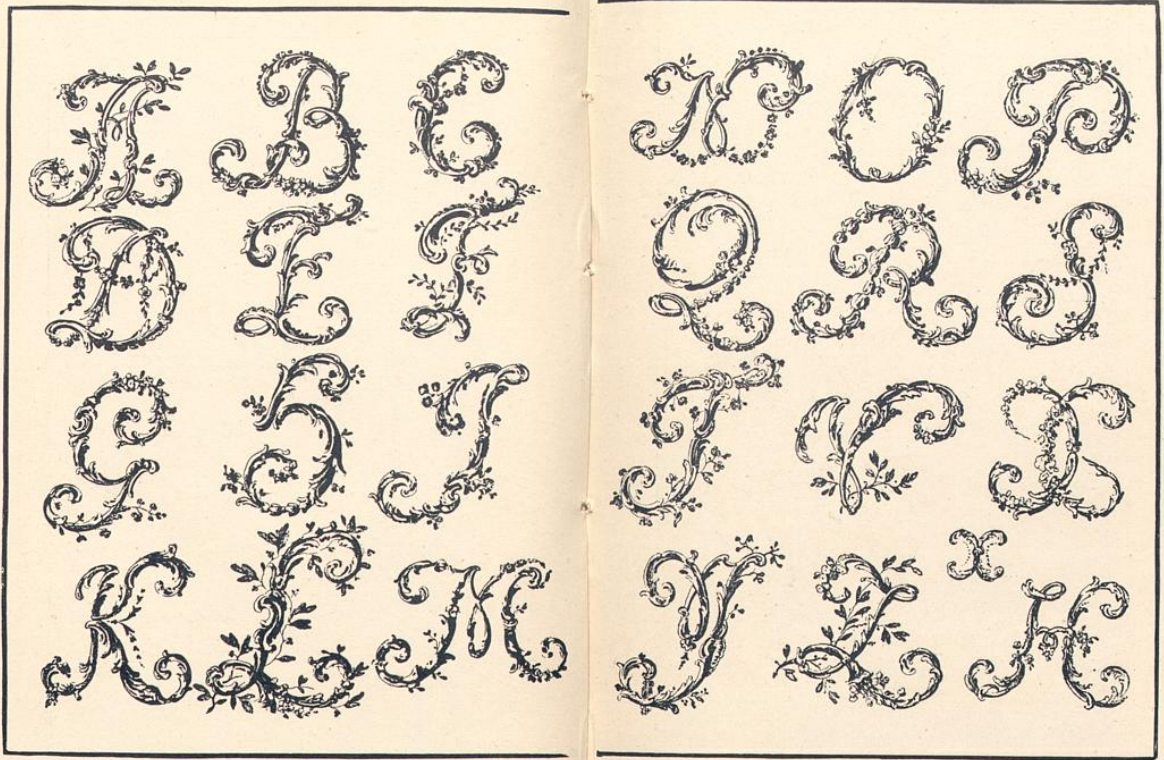 A B C
D E F
G H J
K L M
N O P
Q R S
T V X
X
Y Z H